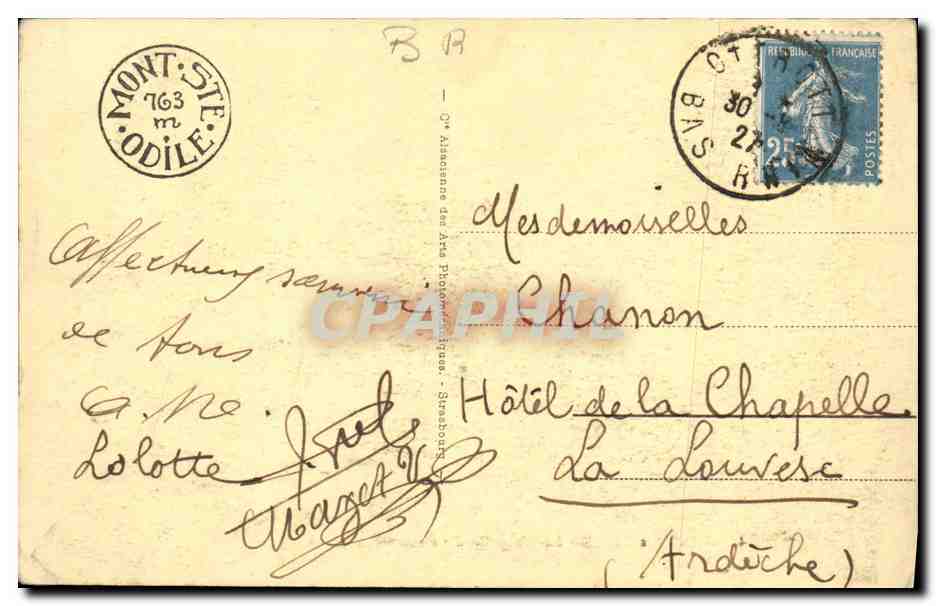 MONT · STE · ODILE ·
763
m
BR
RÉPUBLIQUE FRANÇAISE
25
POSTES
OTTROTT
30
27
BAS RHIN
Affectueux souvenir
de tous
Lolotte
Mazet
— Cie Alsacienne des Arts Photomécaniques. - Strasbourg
Mesdemoiselles
Chanon
Hôtel de la Chapelle
La Louvesc
(Ardèche)
CPAPHIL